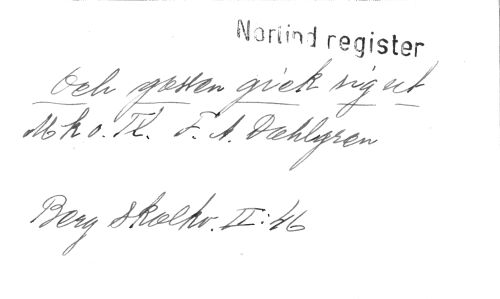 Norlind register
Och gossen gick sig ut
Mk o. Tt. F. A. Dahlgren
Berg Skolkv. II:46